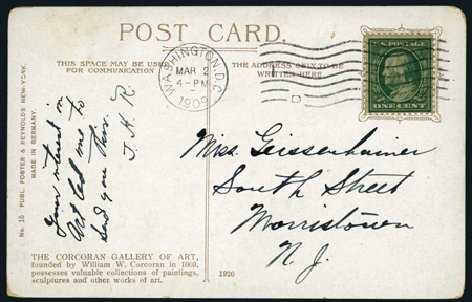 POST CARD.
THIS SPACE MAY BE USED
FOR COMMUNICATION
THE ADDRESS ONLY TO BE
WRITTEN HERE.
WASHINGTON, D.C.
MAR 2
4-PM
1909
D
U.S. POSTAGE
ONE CENT
Your interest in
Art led me to
send you this.
J. H. R.
Mrs. Geissenhainer
South Street
Morristown
N. J.
No. 15 PUBL. FOSTER & REYNOLDS, NEW-YORK.
MADE IN GERMANY.
THE CORCORAN GALLERY OF ART,
founded by William W. Corcoran in 1869,
possesses valuable collections of paintings,
sculptures and other works of art.
1920